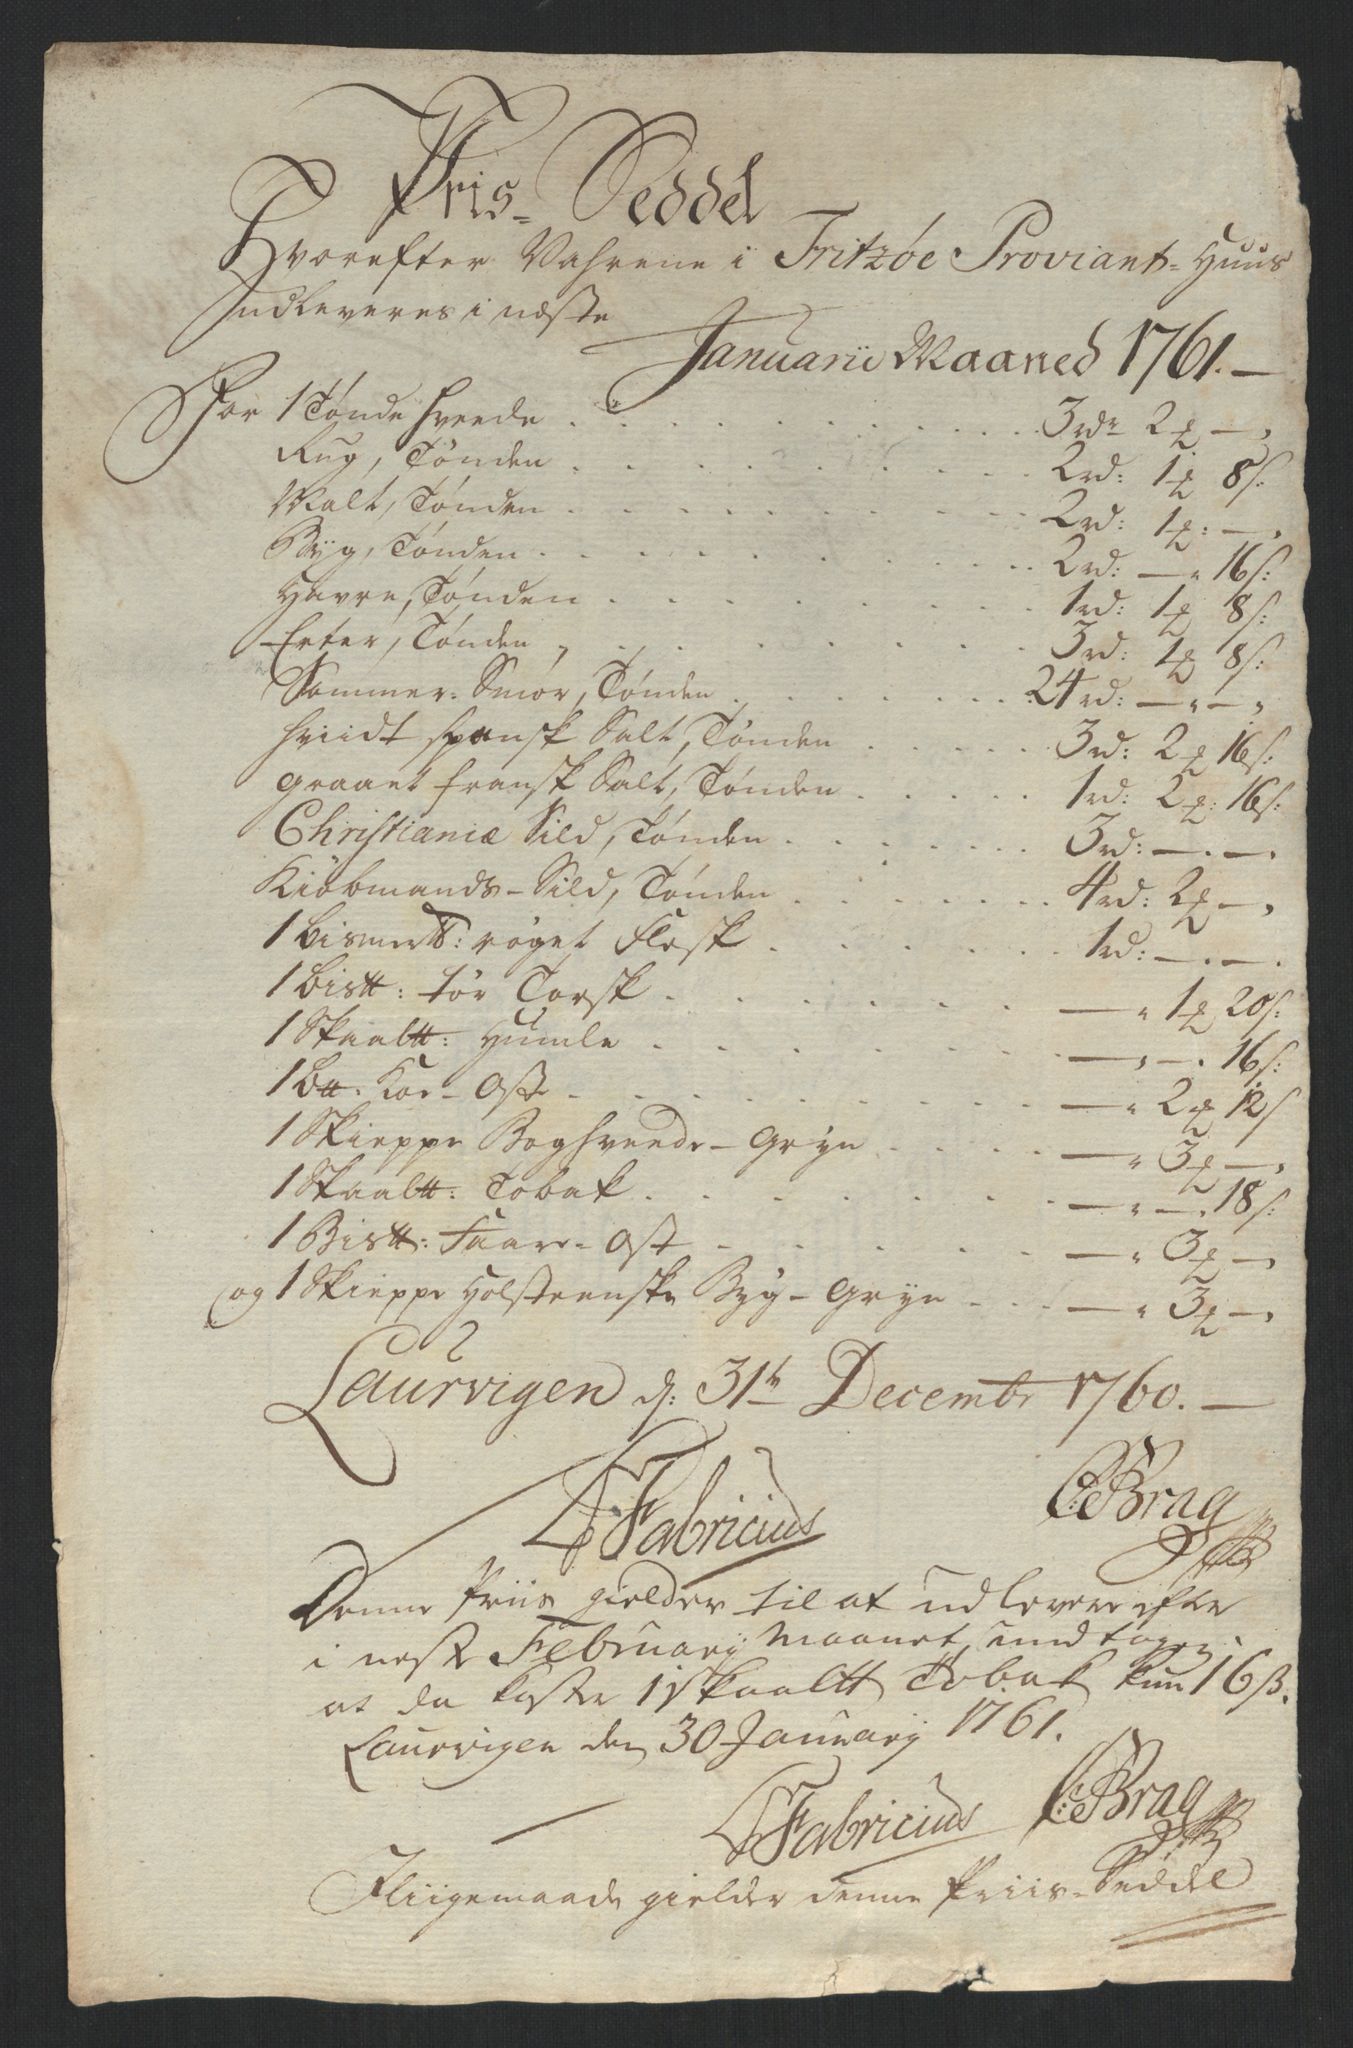 Priis- Seddel
Hvorefter Vahrene i Fritzøe Proviant-Huus
Indleveres i næste
Januarii Maaned 1761.—
For 1 Tønde Hvede . . . 3 rdr 2 ℔ — „
Rug, Tønden . . . 2 rd: 1 ℔ 8 s:
Malt, Tønden . . . 2 rd: 1 ℔: — „
Byg, Tønden . . . 2 rd: — „ 16 s:
Havre, Tønden . . . 1 rd: 1 ℔ 8 s:
Erter, Tønden „ . . . 3 rd: 1 ℔ 8 s:
Sommer-Smör, Tønden . . . 24 rd: — „ — „
Hviidt spansk Salt, Tønden . . . 3 rd: 2 ℔ 16 s:
graaet fransk Salt, Tønden . . . 1 rd: 2 ℔: 16 s:
Christianiæ Sild, Tønden . . . 3 rd: — . — .
Kiöbmands-Sild, Tønden . . . 4 rd: 2 ℔ — „
1 Bismert℔: röget Flesk . . . 1 rd: — . — .
1 Bis℔: tör Torsk . . . — „ 1 ℔ 20 s:
1 Skaal℔: Humle . . . — „ — . 16 s:
1 B℔. Koe-Ost . . . — „ 2 ℔ 12 s
1 Skieppe Boghvede-Gryn . . . — „ 3 ℔ — „
1 Skaal℔: Tobak . . . — „ — . 18 s:
1 Bis℔: Faare-Ost . . . — „ 3 ℔ — „
og 1 Skieppe Holsteenske Byg-Gryn . . . — „ 3 ℔ — „
Laurvigen d: 31te Decembr 1760.—
Fabricius C: Brag
Denne Priis gielder til at udlevere efter
i neste February Maanet, undtagen
at da koster 1 Skaal℔ Tobak kun 16 ß.
Laurvigen den 30 January 1761.
Fabricius C: Brag
Iliigemaade gielder denne Priis-Seddel